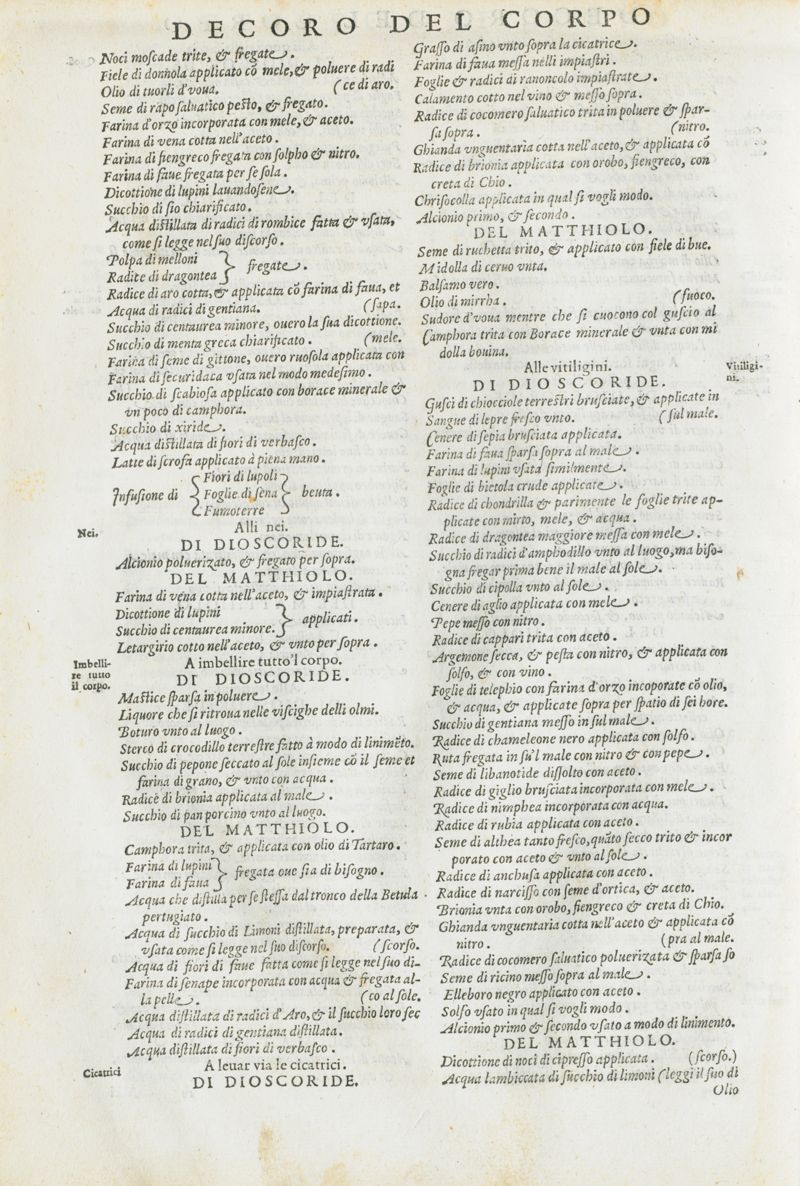 DECORO DEL CORPO
Noci moſcade trite, & fregate.
Fiele di donnola applicato cō mele, & poluere di radi
Olio di tuorli d'voua. (ce di aro.
Seme di rapo ſaluatico peſto, & fregato.
Farina d'orzo incorporata con mele, & aceto.
Farina di vena cotta nell'aceto.
Farina di fiengreco fregata con ſolpho & nitro.
Farina di faue fregata per ſe ſola.
Dicottione di lupini lauandoſene.
Succhio di ſio chiarificato.
Acqua diſtillata di radici di rombice fatta & vſata,
come ſi legge nel ſuo diſcorſo.
Polpa di melloni
Radite di dragontea } fregate.
Radice di aro cotta, & applicata cō farina di faua, et
Acqua di radici di gentiana. (ſapa.
Succhio di centaurea minore, ouero la ſua dicottione.
Succhio di menta greca chiarificato. (mele.
Farina di ſeme di gittone, ouero ruoſola applicata con
Farina di ſecuridaca vſata nel modo medeſimo.
Succhio di ſcabioſa applicato con borace minerale &
vn poco di camphora.
Succhio di xiride.
Acqua diſtillata di fiori di verbaſco.
Latte di ſcrofa applicato à piena mano.
Fiori di lupoli
Infuſione di { Foglie di ſena } beuta.
Fumoterre
Nei.
Alli nei.
DI DIOSCORIDE.
Alcionio poluerizato, & fregato per ſopra.
DEL MATTHIOLO.
Farina di vena cotta nell'aceto, & impiaſtrata.
Dicottione di lupini
Succhio di centaurea minore. } applicati.
Letargirio cotto nell'aceto, & vnto per ſopra.
Imbelli-
re tutto
il corpo.
A imbellire tutto'l corpo.
DI DIOSCORIDE.
Maſtice ſparſa in poluere.
Liquore che ſi ritroua nelle viſcighe delli olmi.
Boturo vnto al luogo.
Sterco di crocodillo terreſtre fatto à modo di linimēto.
Succhio di pepone ſeccato al ſole inſieme cō il ſeme et
farina di grano, & vnto con acqua.
Radice di brionia applicata al male.
Succhio di pan porcino vnto al luogo.
DEL MATTHIOLO.
Camphora trita, & applicata con olio di Tartaro.
Farina di lupini
Farina di faua } fregata oue ſia di biſogno.
Acqua che diſtilla per ſe ſteſſa dal tronco della Betula
pertugiato.
Acqua di ſucchio di Limoni diſtillata, preparata, &
vſata come ſi legge nel ſuo diſcorſo. (ſcorſo.
Acqua di fiori di faue fatta come ſi legge nel ſuo di-
Farina di ſenape incorporata con acqua & fregata al-
la pelle. (co al ſole.
Acqua diſtillata di radici d'Aro, & il ſucchio loro ſec
Acqua di radici di gentiana diſtillata.
Acqua diſtillata di fiori di verbaſco.
Cicatrici
A leuar via le cicatrici.
DI DIOSCORIDE.
Graſſo di aſino vnto ſopra la cicatrice.
Farina di faua meſſa nelli impiaſtri.
Foglie & radici di ranoncolo impiaſtrate.
Calamento cotto nel vino & meſſo ſopra.
Radice di cocomero ſaluatico trita in poluere & ſpar-
ſa ſopra. (nitro.
Ghianda vnguentaria cotta nell'aceto, & applicata cō
Radice di brionia applicata con orobo, fiengreco, con
creta di Chio.
Chriſocolla applicata in qual ſi vogli modo.
Alcionio primo, & ſecondo.
DEL MATTHIOLO.
Seme di ruchetta trito, & applicato con fiele di bue.
Midolla di ceruo vnta.
Balſamo vero.
Olio di mirrha. (fuoco.
Sudore d'voua mentre che ſi cuocono col guſcio al
Camphora trita con Borace minerale & vnta con mi
dolla bouina.
Alle vitiligini.
Vitiligi-
ni.
DI DIOSCORIDE.
Guſci di chiocciole terreſtri bruſciate, & applicate in
Sangue di lepre freſco vnto. (ſul male.
Cenere di ſepia bruſciata applicata.
Farina di faua ſparſa ſopra al male.
Farina di lupini vſata ſimilmente.
Foglie di bietola crude applicate.
Radice di chondrilla & parimente le foglie trite ap-
plicate con mirto, mele, & acqua.
Radice di dragontea maggiore meſſa con mele.
Succhio di radici d'amphodillo vnto al luogo, ma biſo-
gna fregar prima bene il male al ſole.
Succhio di cipolla vnto al ſole.
Cenere di aglio applicata con mele.
Pepe meſſo con nitro.
Radice di cappari trita con aceto.
Argemone ſecca, & peſta con nitro, & applicata con
ſolfo, & con vino.
Foglie di telephio con farina d'orzo incoporate cō olio,
& acqua, & applicate ſopra per ſpatio di ſei hore.
Succhio di gentiana meſſo in ſul male.
Radice di chameleone nero applicata con ſolfo.
Ruta fregata in ſu'l male con nitro & con pepe.
Seme di libanotide diſſolto con aceto.
Radice di giglio bruſciata incorporata con mele.
Radice di nimphea incorporata con acqua.
Radice di rubia applicata con aceto.
Seme di althea tanto freſco, quāto ſecco trito & incor
porato con aceto & vnto al ſole.
Radice di anchuſa applicata con aceto.
Radice di narciſſo con ſeme d'ortica, & aceto.
Brionia vnta con orobo, fiengreco & creta di Chio.
Ghianda vnguentaria cotta nell'aceto & applicata cō
nitro. (pra al male.
Radice di cocomero ſaluatico poluerizata & ſparſa ſo
Seme di ricino meſſo ſopra al male.
Elleboro negro applicato con aceto.
Solfo vſato in qual ſi vogli modo.
Alcionio primo & ſecondo vſato a modo di linimento.
DEL MATTHIOLO.
Dicottione di noci di cipreſſo applicata. (ſcorſo.)
Acqua lambiccata di ſucchio di limoni (leggi il ſuo di
Olio